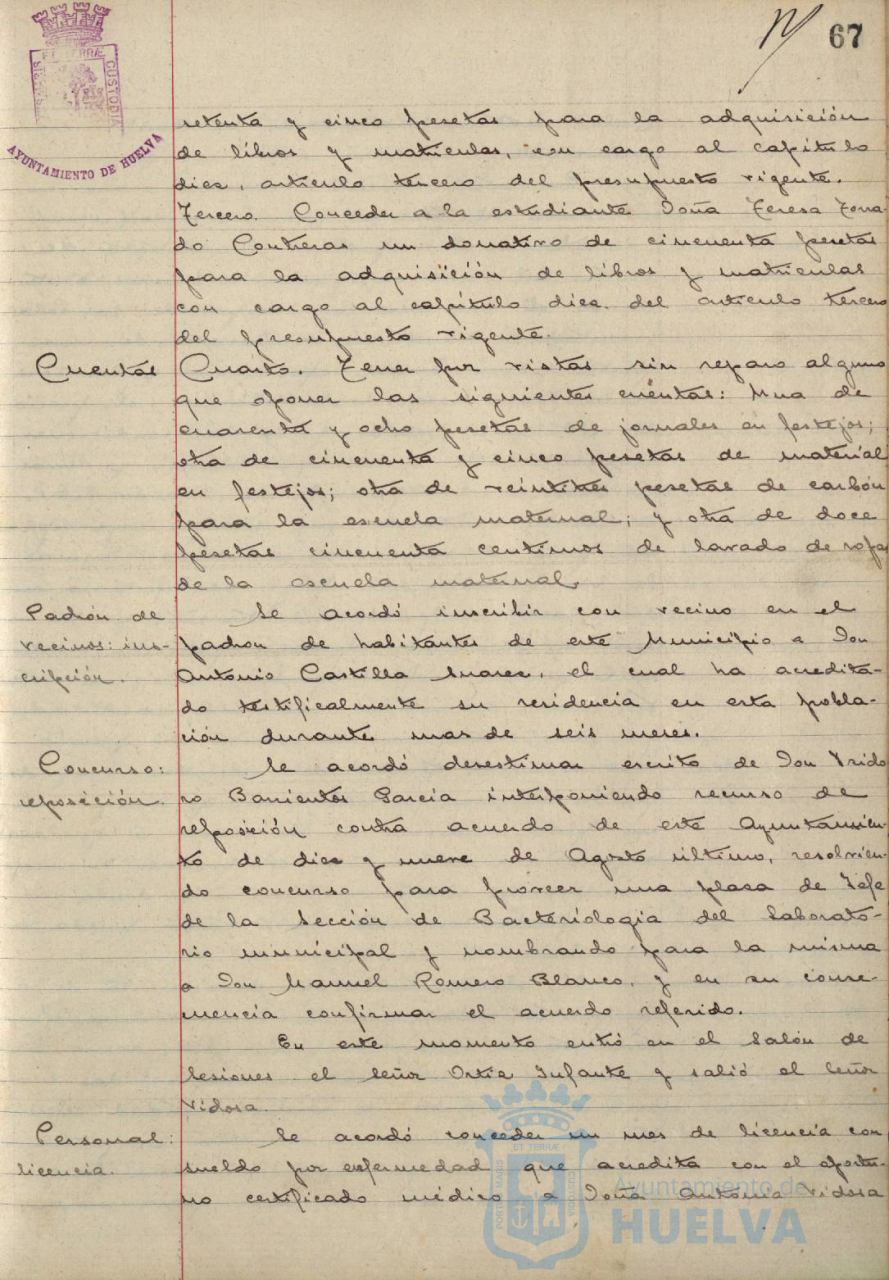 67
AYUNTAMIENTO DE HUELVA
setenta y cinco pesetas para la adquisición
de libros y matriculas, con cargo al capitulo
diez, articulo tercero del presupuesto vigente.
Tercero. Conceder a la estudiante Doña Teresa
do Contreras un donativo de cincuenta pesetas
para la adquisición de libros y matriculas
con cargo al capitulo diez del articulo tercero
del presupuesto vigente.
Cuentas Cuarto. Tener por vistas sin reparo alguno
que oponer las siguientes cuentas: Una de
cuarenta y ocho pesetas de jornales en festejos;
otra de cincuenta y cinco pesetas de material
en festejos; otra de veintitres pesetas de carbón
para la escuela maternal; y otra de doce
pesetas cincuenta centimos de lavado de ropa
de la escuela maternal.
Padrón de Se acordó inscribir con vecino en el
vecinos: ins- padron de habitantes de este Municipio a Don
cripción. Antonio Castilla Suarez, el cual ha acredita-
do testificalmente su residencia en esta pobla-
ción durante mas de seis meses.
Concurso: Se acordó desestimar escrito de Don Ysido
reposición. ro Barrientos Garcia interponiendo recurso de
reposición contra acuerdo de este Ayuntamien-
to de diez y nueve de Agosto último, resolvien-
do concurso para proveer una plaza de Jefe
de la Sección de Bacteriologia del Laborató-
rio municipal y nombrando para la misma
a Don Manuel Romero Blanco, y en su conse-
cuencia confirmar el acuerdo referido.
En este momento entró en el Salón de
Sesiones el Señor Ortiz Infante y salió el Señor
Vidosa.
Personal: Se acordó conceder un mes de licencia con
licencia. sueldo por enfermedad que acredita con el oportu-
no certificado médico a Doña Antonia Vidosa
Ayuntamiento de
HUELVA